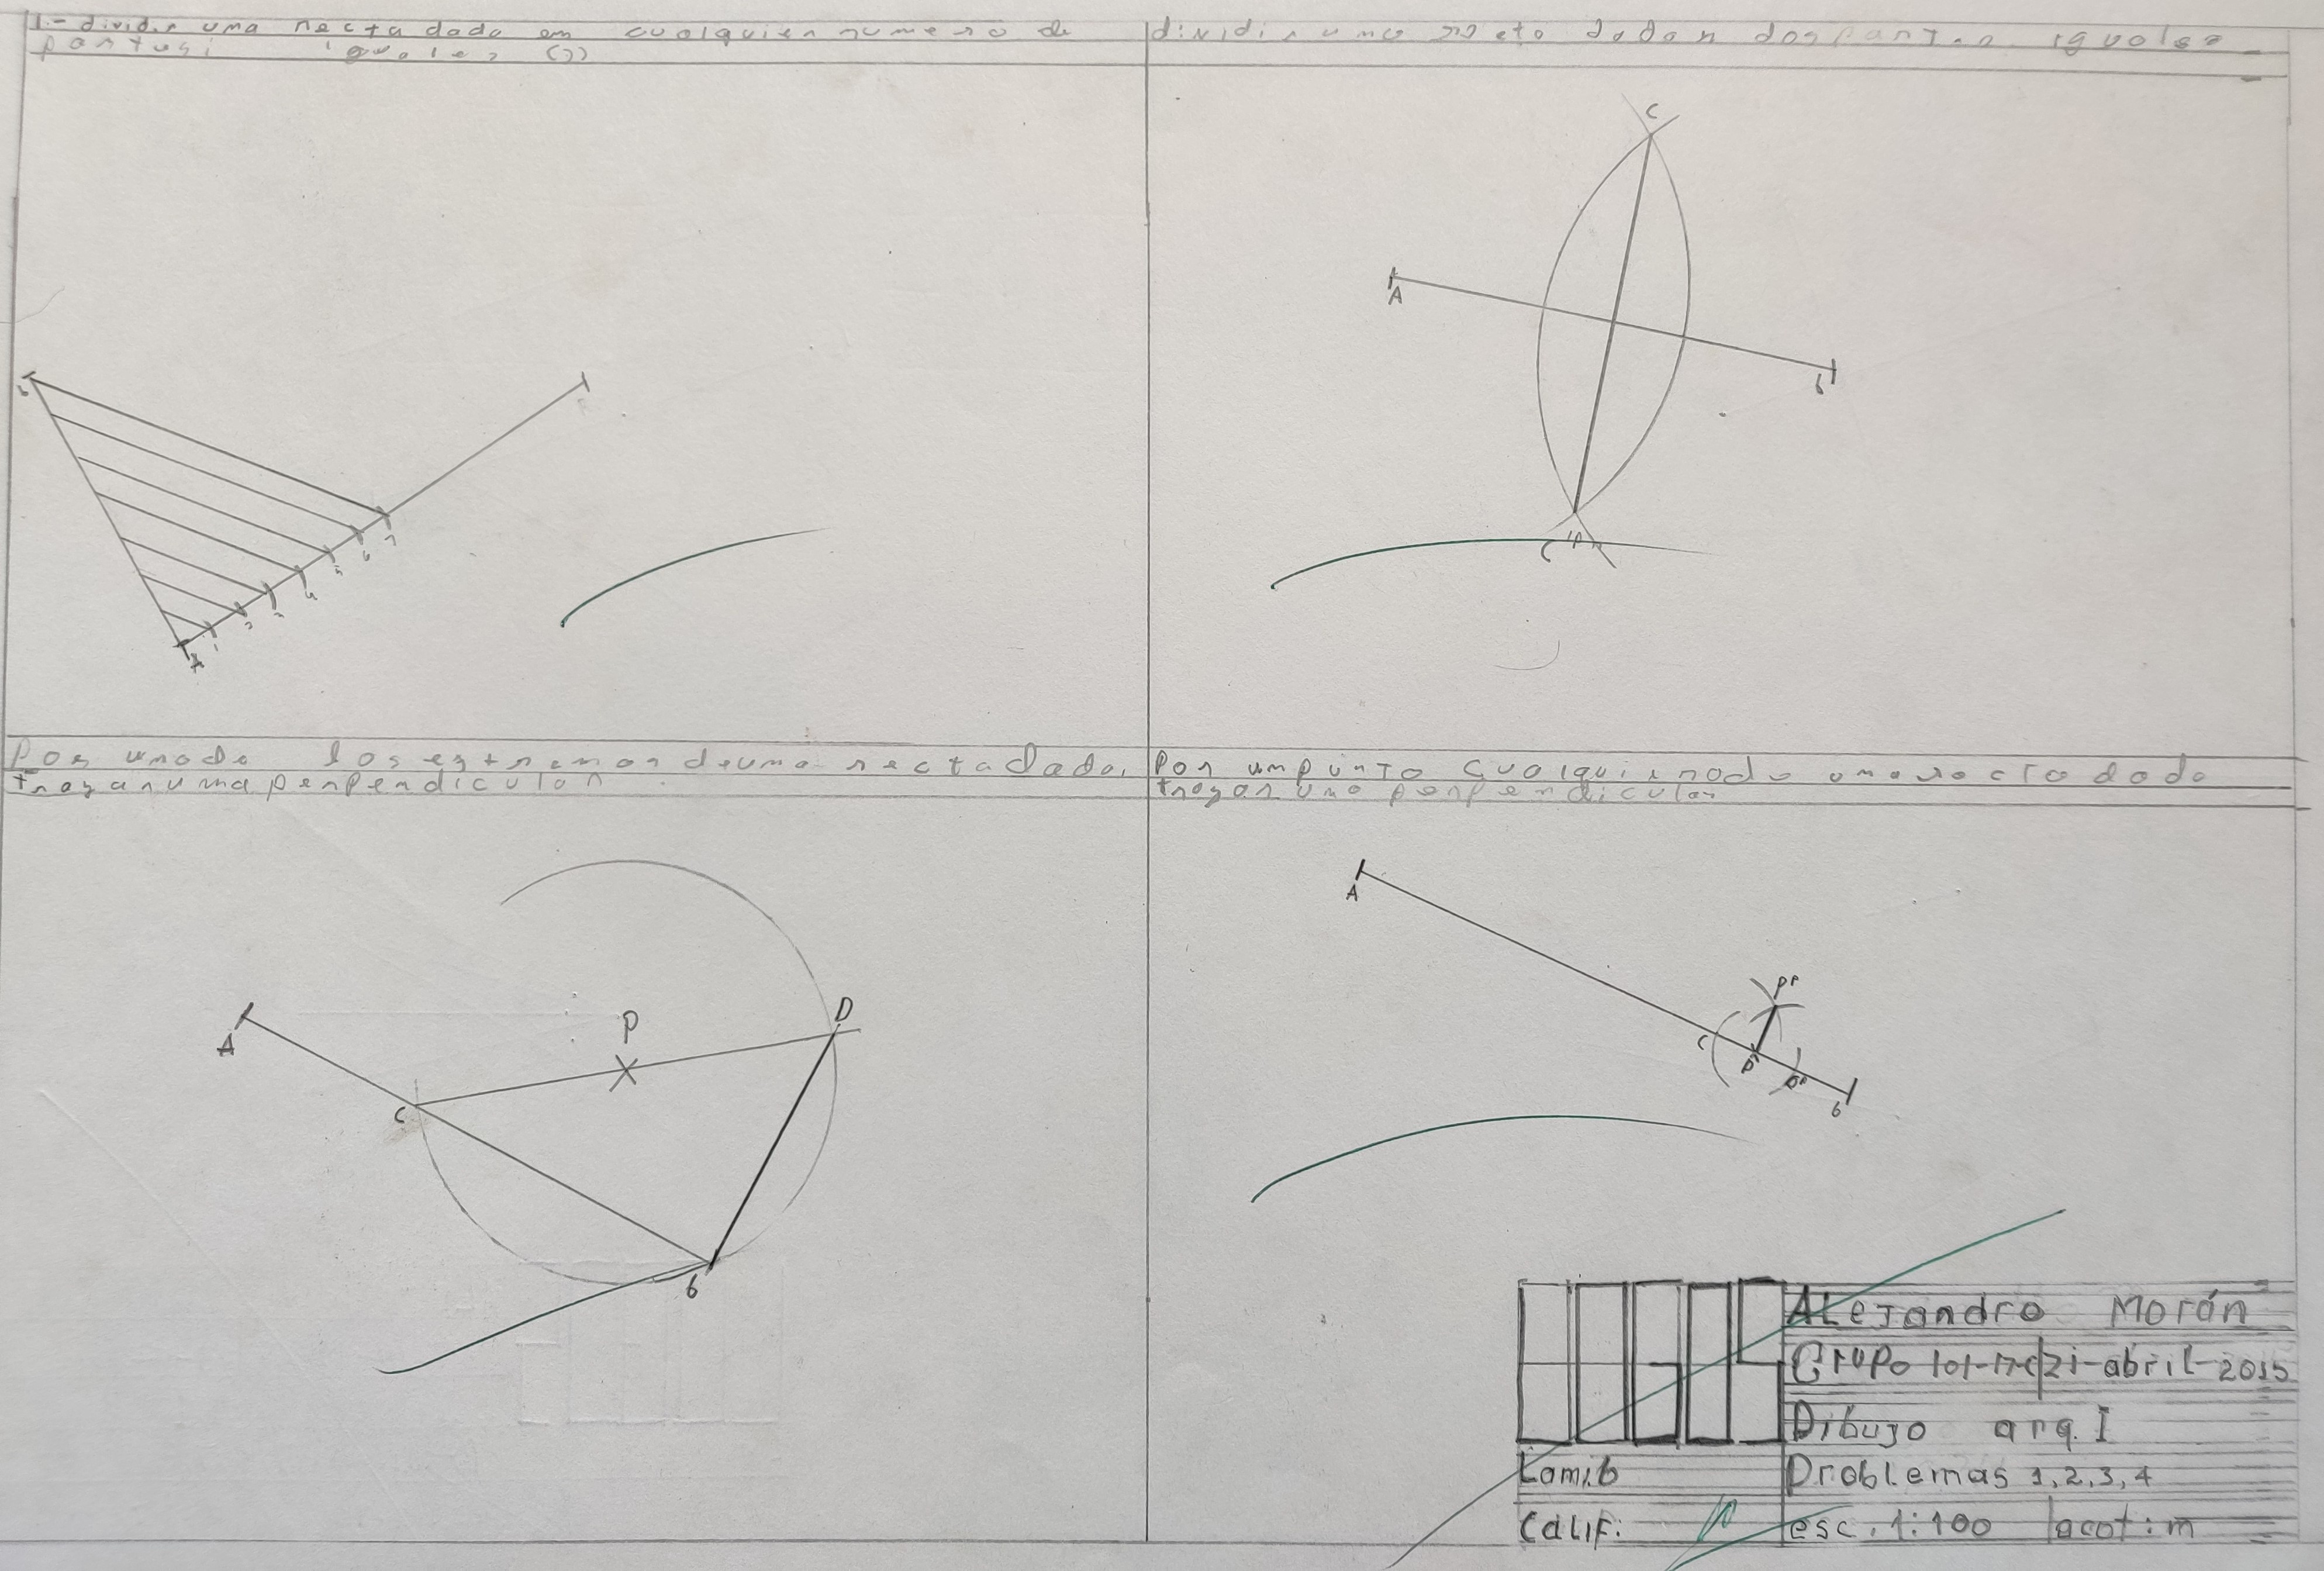 1.- dividir uma recta dada en cualquier numero de
partusi iguales (7)
dividir
iguales
A
1
2
3
4
5
6
7
C
A
b
C
Por unode los extremos deuma rectadada,
trazarumaperpendicular
Por umpunto cualquierode una recta dada
trazar una perpendicular
A
C
P
D
b
A
C
P
b
ALejandro Morán
Grupo 21-abril-2015
Dibujo arq. I
Problemas 1,2,3,4
Lam:b
Calif: 10
esc. 1:100 acot:m